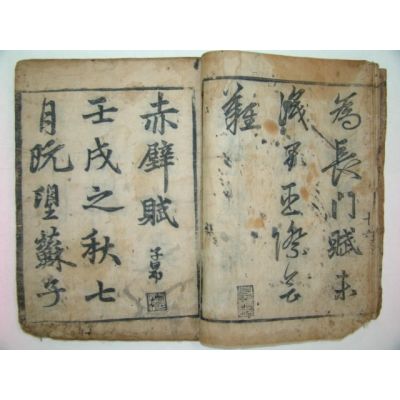 為長門賦未
識君臣際會
難
赤壁賦 子昂
壬戌之秋七
月既望蘇子